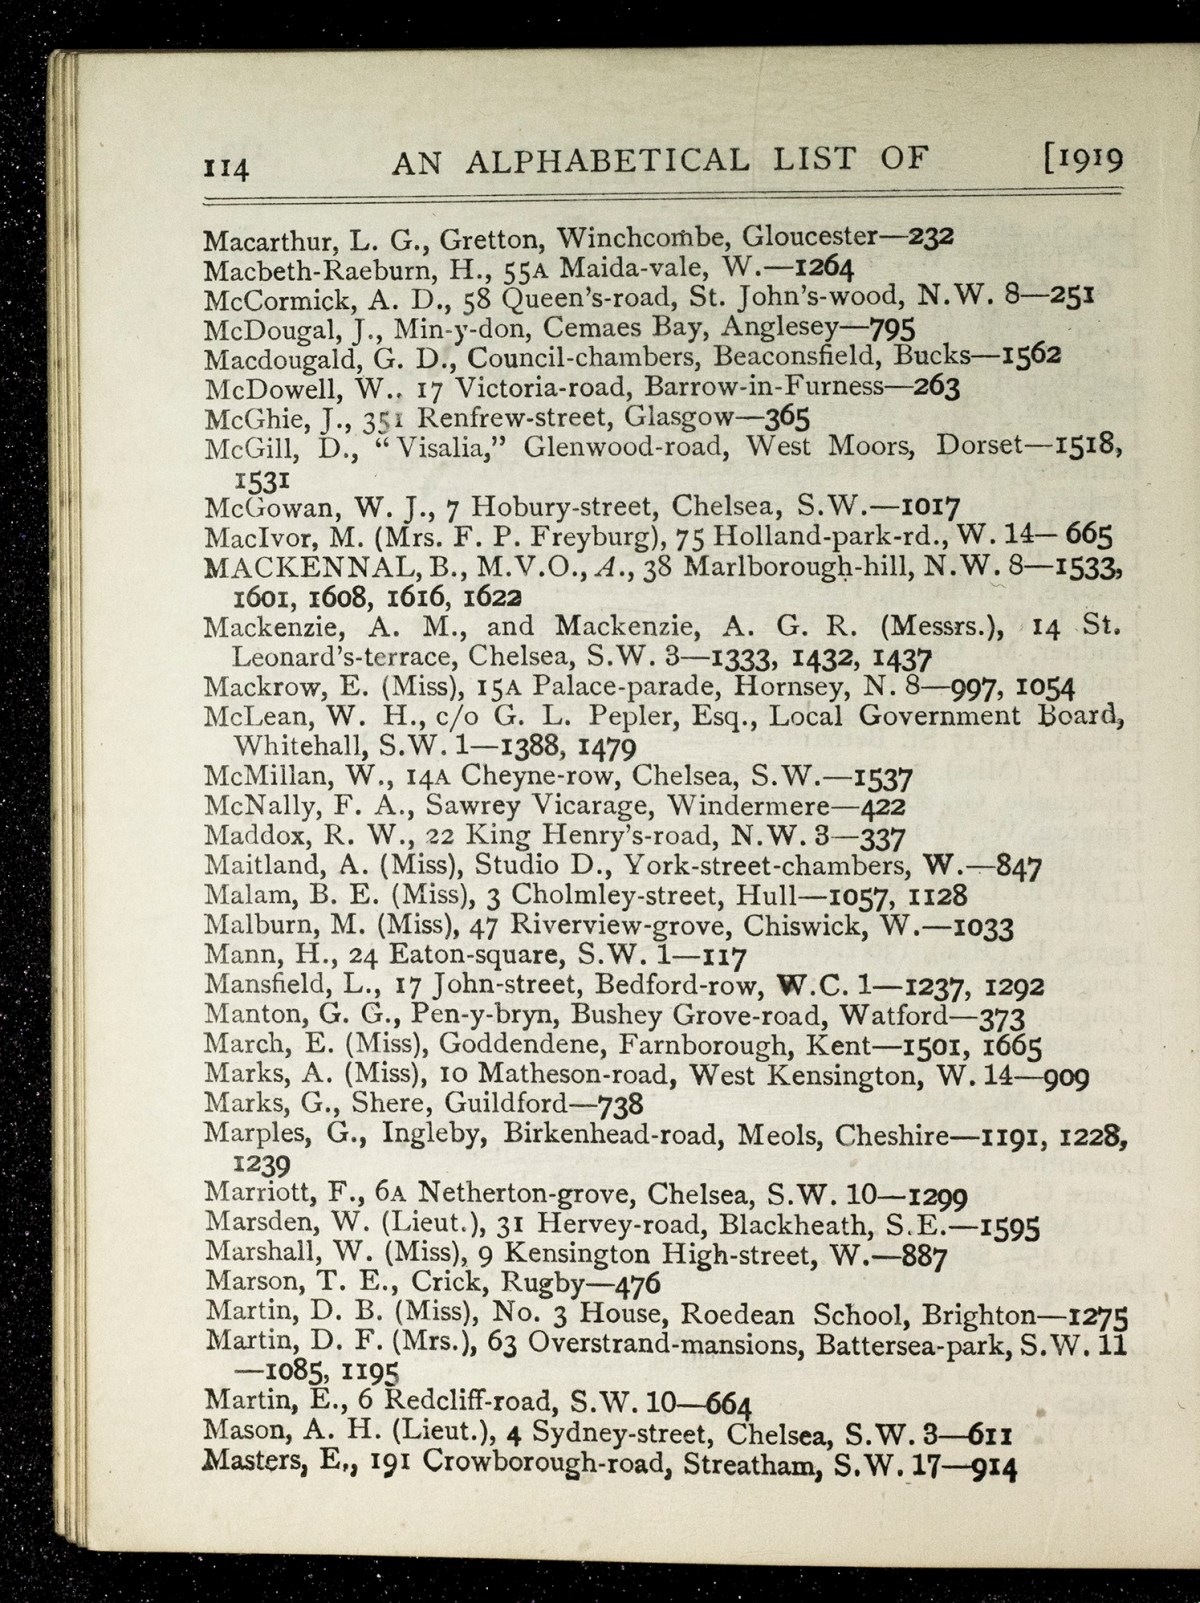 114 AN ALPHABETICAL LIST OF [1919
Macarthur, L. G., Gretton, Winchcombe, Gloucester—232
Macbeth-Raeburn, H., 55A Maida-vale, W.—1264
McCormick, A. D., 58 Queen's-road, St. John's-wood, N.W. 8—251
McDougal, J., Min-y-don, Cemaes Bay, Anglesey—795
Macdougald, G. D., Council-chambers, Beaconsfield, Bucks—1562
McDowell, W.. 17 Victoria-road, Barrow-in-Furness—263
McGhie, J., 351 Renfrew-street, Glasgow—365
McGill, D., “Visalia,” Glenwood-road, West Moors, Dorset—1518,
1531
McGowan, W. J., 7 Hobury-street, Chelsea, S.W.—1017
MacIvor, M. (Mrs. F. P. Freyburg), 75 Holland-park-rd., W. 14—665
MACKENNAL, B., M.V.O., A., 38 Marlborough-hill, N.W. 8—1533,
1601, 1608, 1616, 1622
Mackenzie, A. M., and Mackenzie, A. G. R. (Messrs.), 14 St.
Leonard's-terrace, Chelsea, S.W. 3—1333, 1432, 1437
Mackrow, E. (Miss), 15A Palace-parade, Hornsey, N. 8—997, 1054
McLean, W. H., c/o G. L. Pepler, Esq., Local Government Board,
Whitehall, S.W. 1—1388, 1479
McMillan, W., 14A Cheyne-row, Chelsea, S.W.—1537
McNally, F. A., Sawrey Vicarage, Windermere—422
Maddox, R. W., 22 King Henry's-road, N.W. 3—337
Maitland, A. (Miss), Studio D., York-street-chambers, W.—847
Malam, B. E. (Miss), 3 Cholmley-street, Hull—1057, 1128
Malburn, M. (Miss), 47 Riverview-grove, Chiswick, W.—1033
Mann, H., 24 Eaton-square, S.W. 1—117
Mansfield, L., 17 John-street, Bedford-row, W.C. 1—1237, 1292
Manton, G. G., Pen-y-bryn, Bushey Grove-road, Watford—373
March, E. (Miss), Goddendene, Farnborough, Kent—1501, 1665
Marks, A. (Miss), 10 Matheson-road, West Kensington, W. 14—909
Marks, G., Shere, Guildford—738
Marples, G., Ingleby, Birkenhead-road, Meols, Cheshire—1191, 1228,
1239
Marriott, F., 6A Netherton-grove, Chelsea, S.W. 10—1299
Marsden, W. (Lieut.), 31 Hervey-road, Blackheath, S.E.—1595
Marshall, W. (Miss), 9 Kensington High-street, W.—887
Marson, T. E., Crick, Rugby—476
Martin, D. B. (Miss), No. 3 House, Roedean School, Brighton—1275
Martin, D. F. (Mrs.), 63 Overstrand-mansions, Battersea-park, S.W. 11
—1085, 1195
Martin, E., 6 Redcliff-road, S.W. 10—664
Mason, A. H. (Lieut.), 4 Sydney-street, Chelsea, S.W. 3—611
Masters, E., 191 Crowborough-road, Streatham, S.W. 17—914